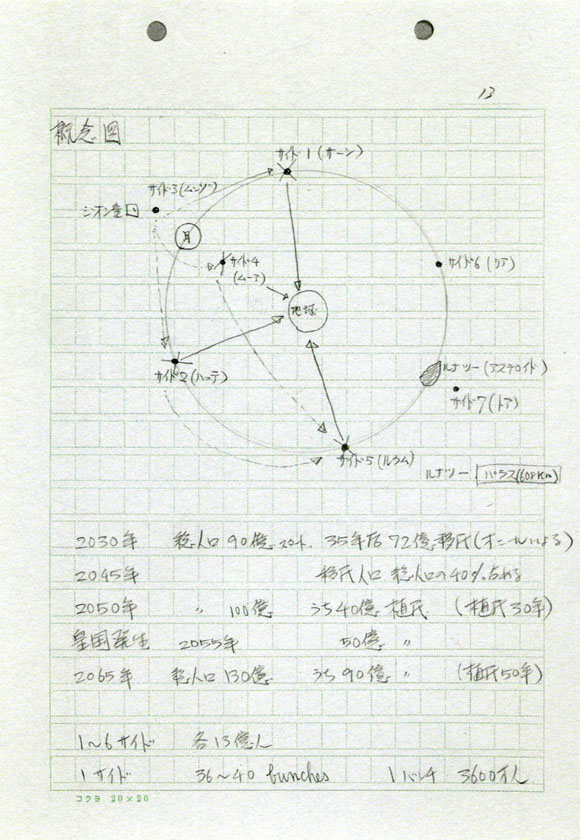 13
概念図
サイド1(ザーン)
サイド3(ムンゾ)
ジオン皇国
月
サイド4
(ムーア)
サイド6(リア)
地球
ルナツー(アステロイド)
サイド7(ノア)
サイド2(ハッテ)
サイド5(ルウム)
ルナツー パラス(608Km)
2030年 総人口90億 スタート. 35年后72億移民(オニールによる)
2045年 移民人口 総人口の40%占める
2050年 〃 100億 うち40億植民 (植民30年)
皇国発生 2055年 50億 〃
2065年 総人口130億 うち90億 〃 (植民50年)
1〜6サイド 各13億人
1サイド 36〜40 bunches 1バンチ 3600万人
コクヨ 20×20